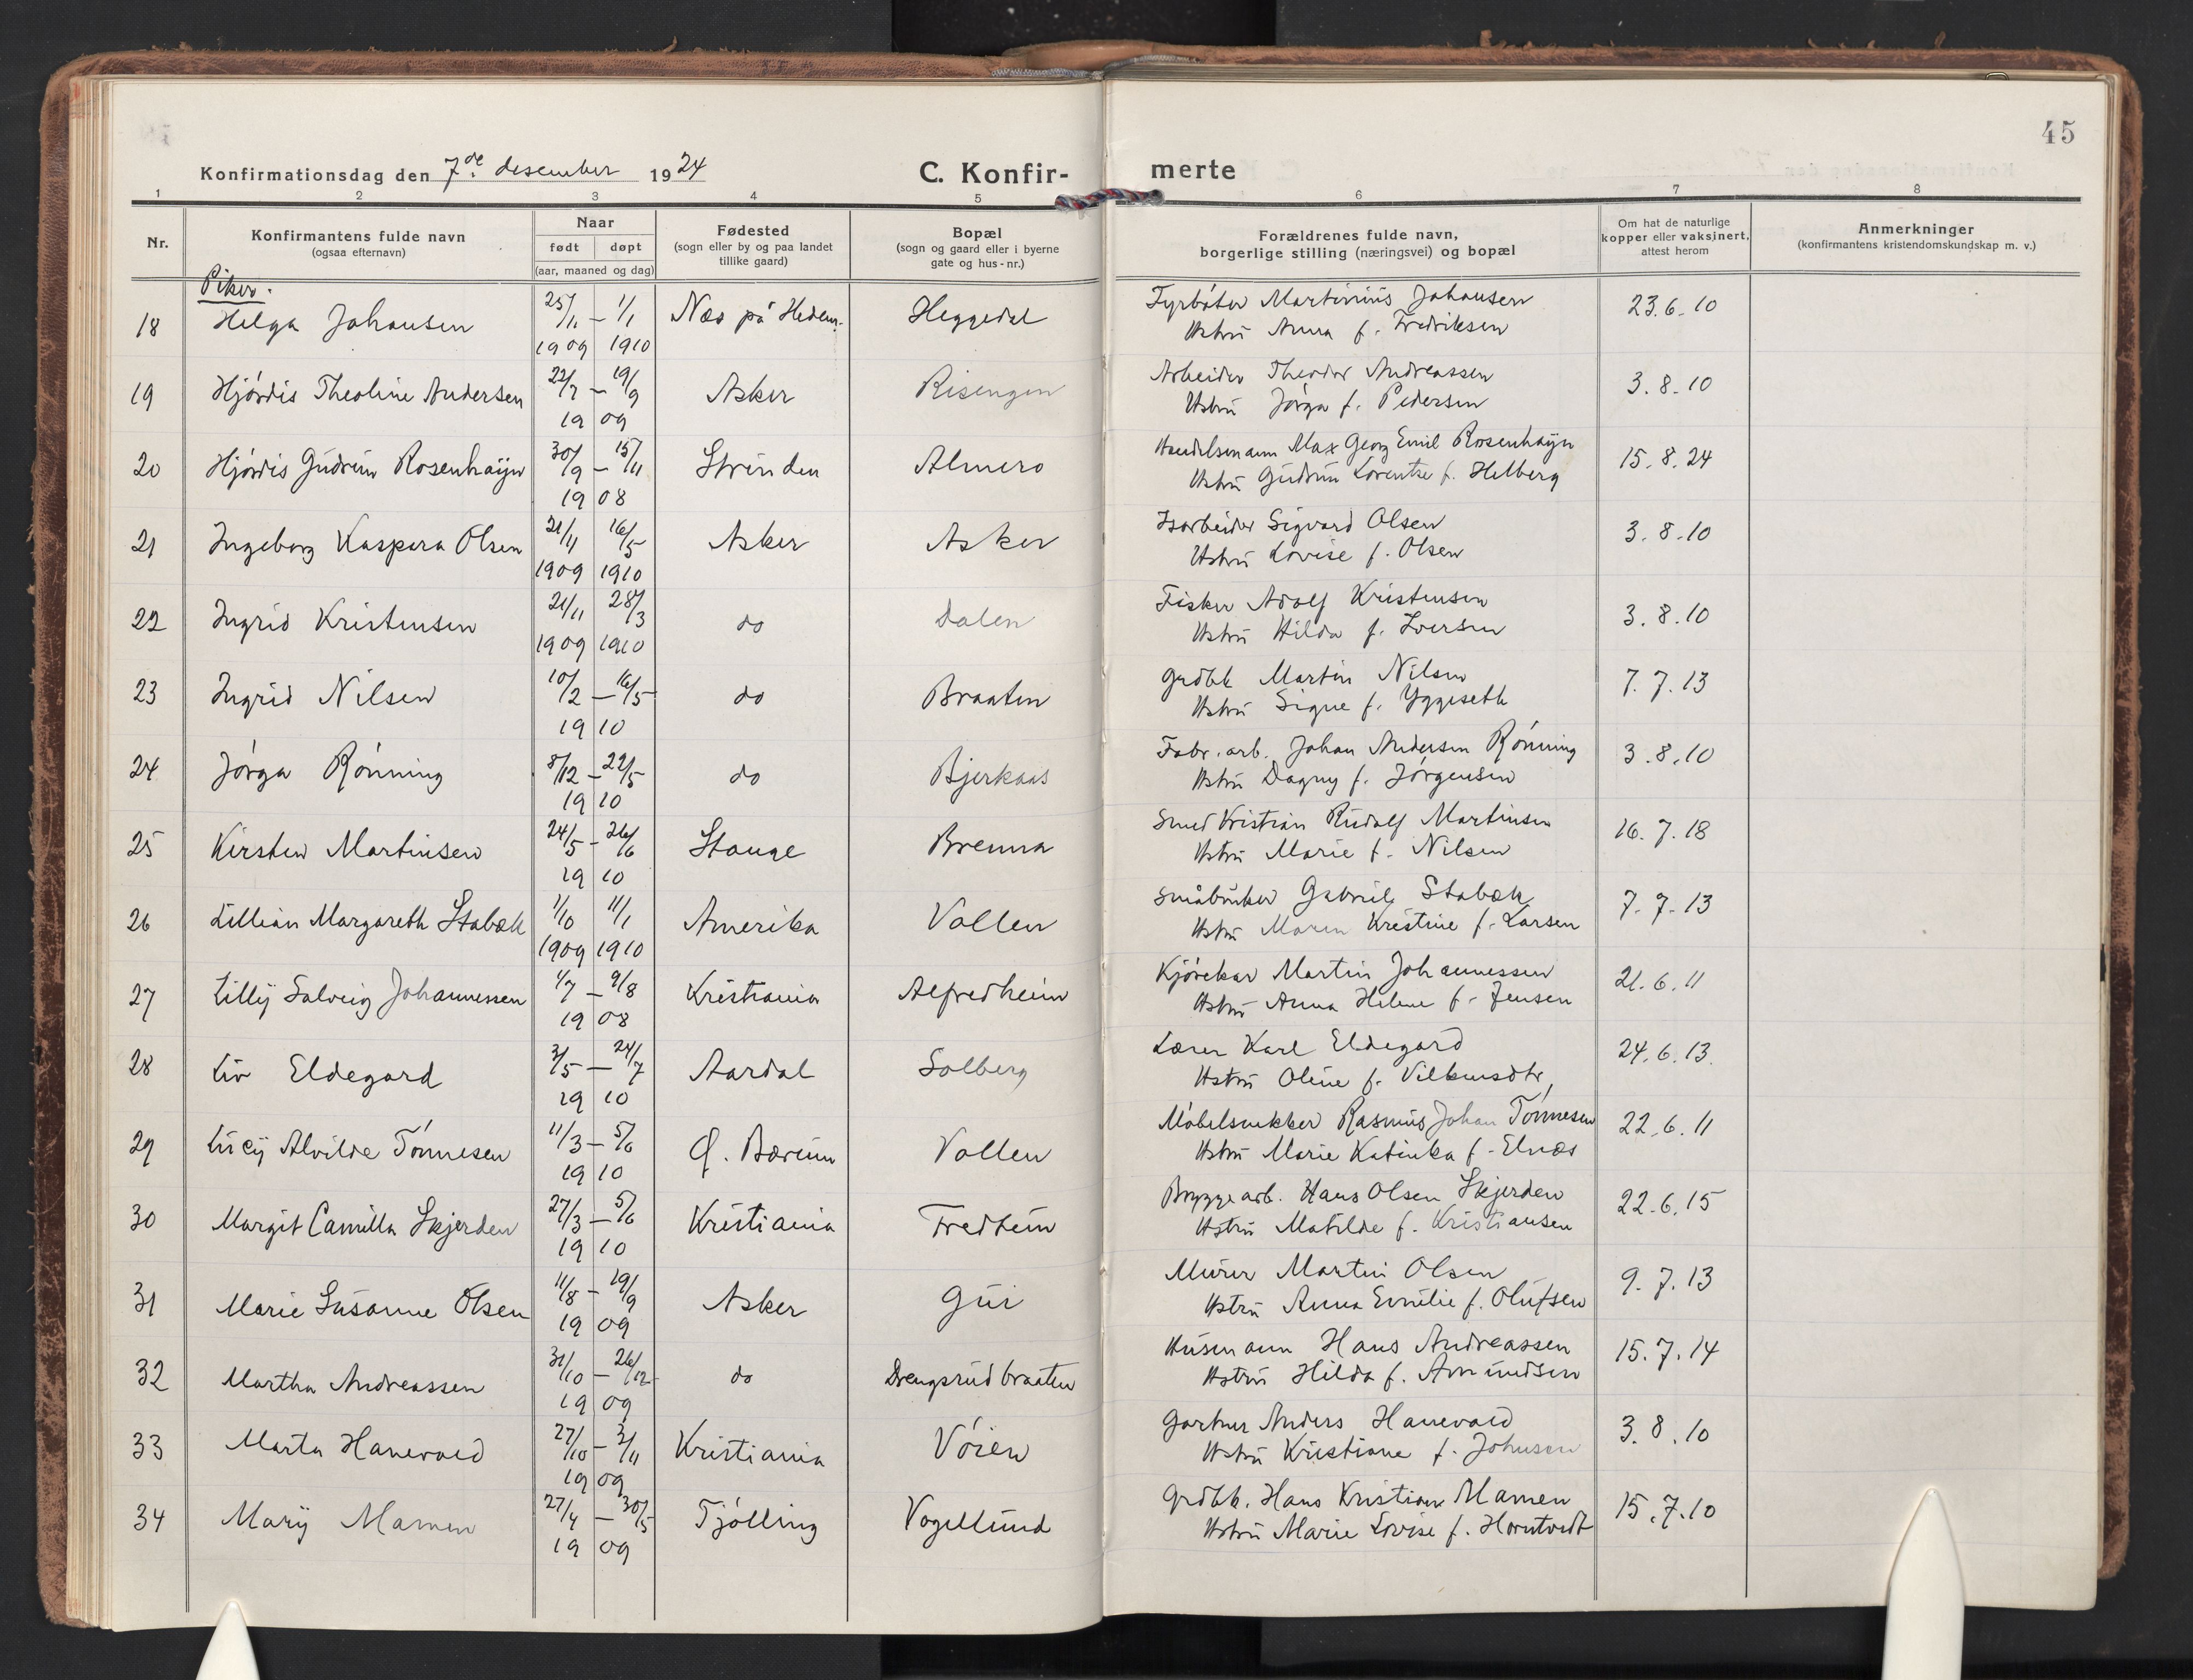 45
Konfirmationsdag den 7de desember 1924
C. Konfirmerte
1 2 3 4 5 6 7 8
Nr.
Konfirmantens fulde navn
(ogsaa efternavn)
Naar
født døpt
(aar, maaned og dag)
Fødested
(sogn eller by og paa landet
tillike gaard)
Bopæl
(sogn og gaard eller i byerne
gate og hus-nr.)
Forældrenes fulde navn,
borgerlige stilling (næringsvei) og bopæl
Om hat de naturlige
kopper eller vaksinert,
attest herom
Anmerkninger
(konfirmantens kristendomskundskap m. v.)
Piker.
18 Helga Johansen 25/11 – 1/1 1909 1910 Næs på Hedem. Heggedal Fyrbøter Martinius Johansen 23.6.10
Hstru Anna f. Fredriksen
19 Hjördis Theoline Andersen 22/7 – 19/9 1909 Asker Risengen Arbeider Theodor Andreassen 3.8.10
Hstru Jörga f. Pedersen
20 Hjördis Gudrun Rosenhaÿn 30/9 – 15/11 1908 Strinden Almero Handelsmann Max Georg Emil Rosenhaÿn 15.8.24
Hstru Gudrun Lorentse f. Helberg
21 Ingeborg Kaspara Olsen 21/11 16/5 1909 1910 Asker Asker Isarbeider Sigvard Olsen 3.8.10
Hstru Lovise f. Olsen
22 Ingrid Kristensen 21/11 28/3 1909 1910 do Dalen Fisker Adolf Kristensen 3.8.10
Hstru Hilda f. Iversen
23 Ingrid Nilsen 10/2 – 16/5 1910 do Braaten Grdbk Martin Nilsen 7.7.13
Hstru Signe f. Yggeseth
24 Jörga Rönning 8/12 – 22/5 1910 do Bjerkaas Fabr. arb. Johan Andersen Rönning 3.8.10
Hstru Dagny f. Jörgensen
25 Kirsten Martinsen 24/5 – 26/6 1910 Stange Brenna Smed Kristian Rudolf Martinsen 16.7.18
Hstru Marie f. Nilsen
26 Lillian Margareth Stabæk 1/10 11/1 1909 1910 Amerika Vollen Småbruker Gabriel Stabæk 7.7.13
Hstru Maren Kristine f. Larsen
27 Lillÿ Solveig Johannessen 1/7 – 9/8 1908 Kristiania Alfredheim Kjörekar Martin Johannessen 21.6.11
Hstru Anna Helene f. Jensen
28 Liv Eldegard 3/5 – 24/7 1910 Aardal Solberg Lærer Karl Eldegard 24.6.13.
Hstru Oline f. Vilkensdtr,
29 Lucÿ Alvilde Tönnesen 11/3 – 5/6 1910 Ø. Bærum Vollen Möbelsnekker Rasmus Johan Tönnesen 22.6.11
Hstru Marie Katinka f. Elnæs
30 Margit Camilla Skjerden 27/3 – 5/6 1910 Kristiania Fredheim Bryggearb. Hans Olsen Skjerden 22.6.15
Hstru Matilde f. Kristiansen
31 Marie Susanne Olsen 11/8 – 19/9 1909 Asker Gui Murer Martin Olsen 9.7.13
Hstru Anna Emilie f. Olufsen
32 Martha Andreassen 31/10 – 26/12 1909 do Drengsrudbraaten Husmann Hans Andreassen 15.7.14
Hstru Hilda f. Amundsen
33 Marta Hanevold 27/10 – 3/11 1909 Kristiania Vöien Gartner Anders Hanevold 3.8.10
Hstru Kristiane f. Johnsen
34 Marÿ Mamen 27/4 – 30/5 1909 Tjölling Vogellund Grdbk. Hans Kristian Mamen 15.7.10
Hstru Marie Lovise f. Horntvedt